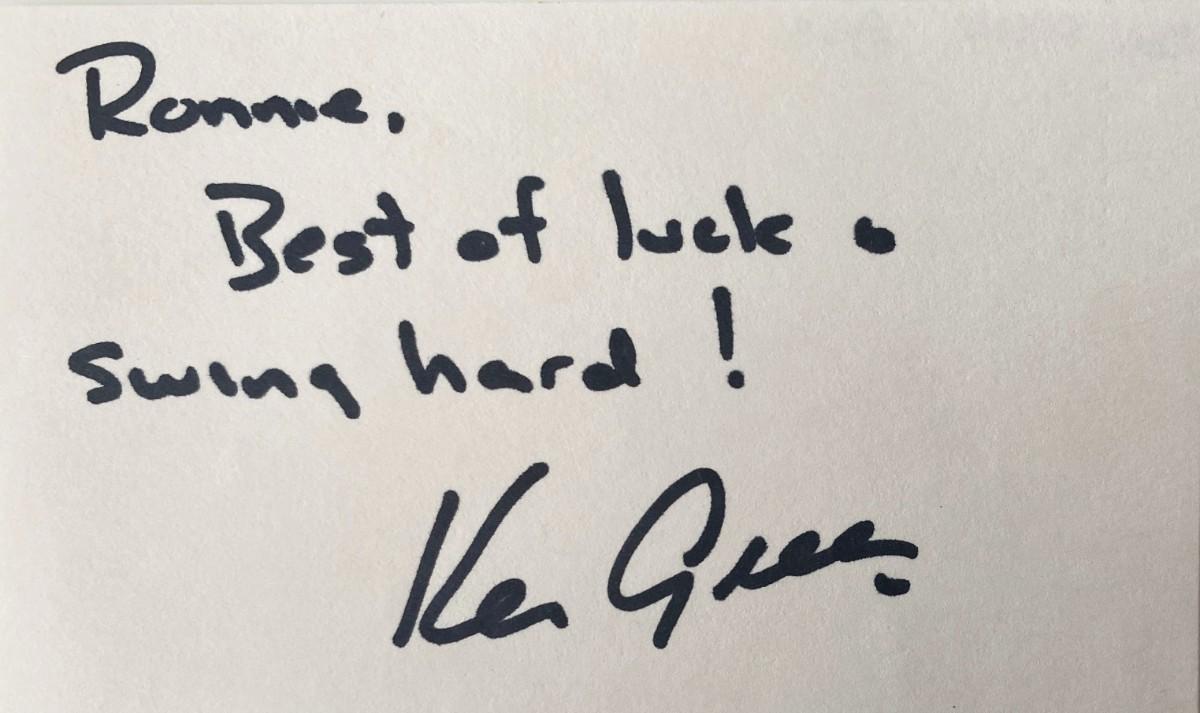 Ronnie,
Best of luck &
swing hard!
Ken Green